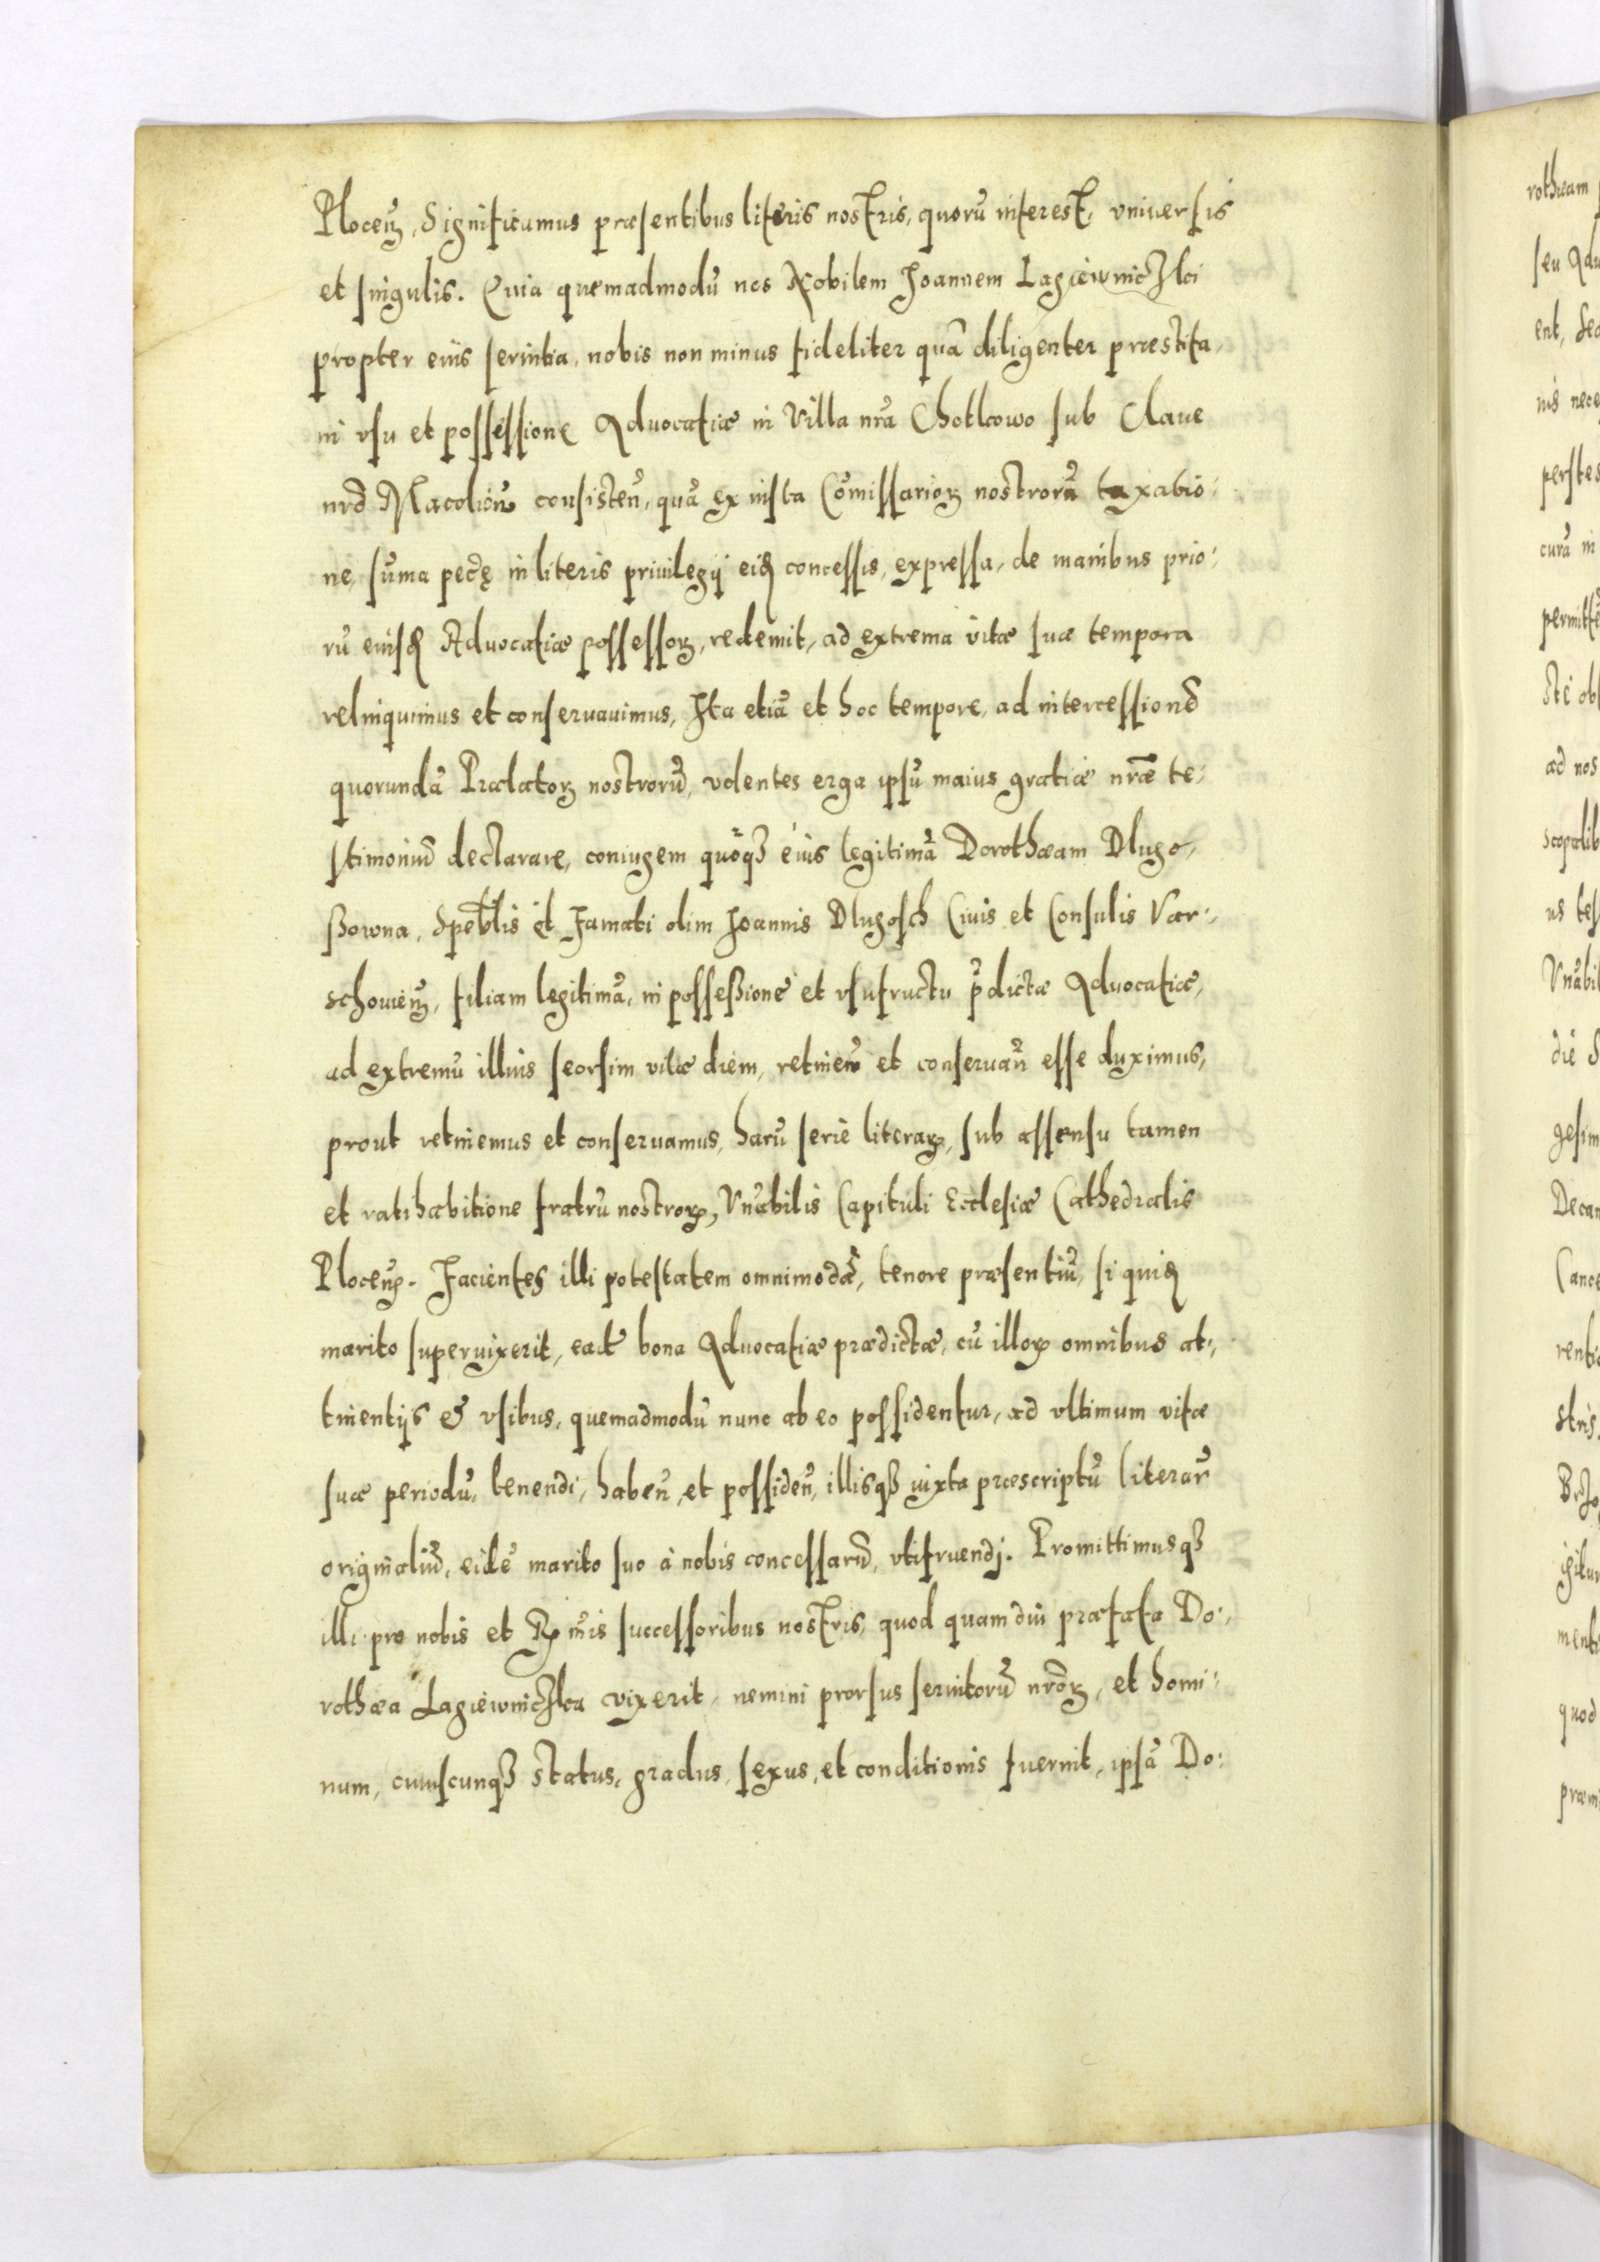 Plocen̄, Significamus præsentibus literis nostris, quorū interest, vniuersis
et singulis. Quia quemadmodū nos Nobilem Joannem Lagiewniczki
propter eius seruitia, nobis non minus fideliter quā diligenter præstita,
in vsu et possessione Aduocatiæ in Villa nrā Chotkowo sub Claue
nrā consisten̄, quā ex iusta Cōmissarioꝝ nostrorū taxatio:
ne, sūma pecę in literis priuilegij eiꝫ concessis, expressa, de manibus prio:
rū eiusꝫ Aduocatiæ possessoꝝ, redemit, ad extrema vitæ suæ tempora
relinquimus et conseruauimus, Ita etiā et hoc tempore, ad intercessionē
quorundā Prælatoꝝ nostrorū, volentes erga ipsū maius gratiæ nræ te-
stimoniū declarare, coniugem quōqꝫ eius legitimā Dorothæam Dlugo-
ßowna, Spēblis et Famati olim Joannis Dlugosch Ciuis et Consulis Var-
schouien̄, filiam legitimā, in possessione et vsufructu p̄dictæ Aduocatiæ,
ad extremū illius seorsim vitæ diem, retinen̄ et conseruan̄ esse duximus,
prout retinemus et conseruamus, harū serie literaꝝ, sub assensu tamen
et ratihabitione fratrū nostroꝝ, Vn̄abilis Capituli Ecclesiæ Cathedralis
Plocen̄. Facientes illi potestatem omnimodā, tenore præsentiū, si quiꝫ
marito superuixerit, eadē bona Aduocatiæ prædictæ, cū illoꝝ omnibus at-
tinentijs & vsibus, quemadmodū nunc ab eo possidentur, ad vltimum vitæ
suæ periodū, tenendi, haben̄, et possiden̄, illisqꝫ iuxta præscriptū literar̄
originaliū, eidē marito suo à nobis concessarū, vtifruendj. Promittimusqꝫ
illi pro nobis et Rm̄is successoribus nostris, quod quamdiu præfata Do-
rothæa Lagiewniczka vixerit, nemini prorsus seruitorū nrōꝝ, et homi-
num, cuiuscunqꝫ status, gradus, sexus, et conditionis fuerint, ipsā Do: